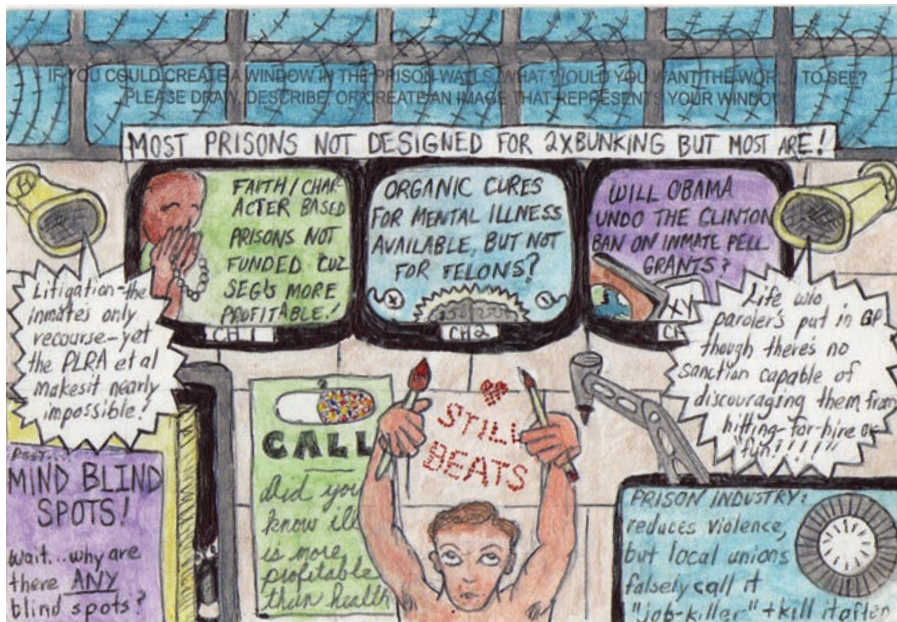 IF YOU COULD CREATE A WINDOW IN THE PRISON WALLS, WHAT WOULD YOU WANT THE WORLD TO SEE?
PLEASE DRAW, DESCRIBE, OR CREATE AN IMAGE THAT REPRESENTS YOUR WINDOW
MOST PRISONS NOT DESIGNED FOR 2XBUNKING BUT MOST ARE!
FAITH/CHAR-
ACTER BASED
PRISONS NOT
FUNDED CUZ
SEG'S MORE
PROFITABLE!
CH1
ORGANIC CURES
FOR MENTAL ILLNESS
AVAILABLE, BUT NOT
FOR FELONS?
CH2
WILL OBAMA
UNDO THE CLINTON
BAN ON INMATE PELL
GRANTS?
Litigation-the
inmates only
recourse-yet
the PLRA et al
makes it nearly
impossible!
Life w/o
paroler's put in GP
though there's no
sanction capable of
discouraging them from
hitting-for-hire or
"fun!!!!!"
PSST...
MIND BLIND
SPOTS!
Wait...why are
there ANY
blind spots?
CALL
did you
know ill
is more
profitable
than health
STILL
BEATS
PRISON INDUSTRY:
reduces violence,
but local unions
falsely call it
"job-killer" + kill it often